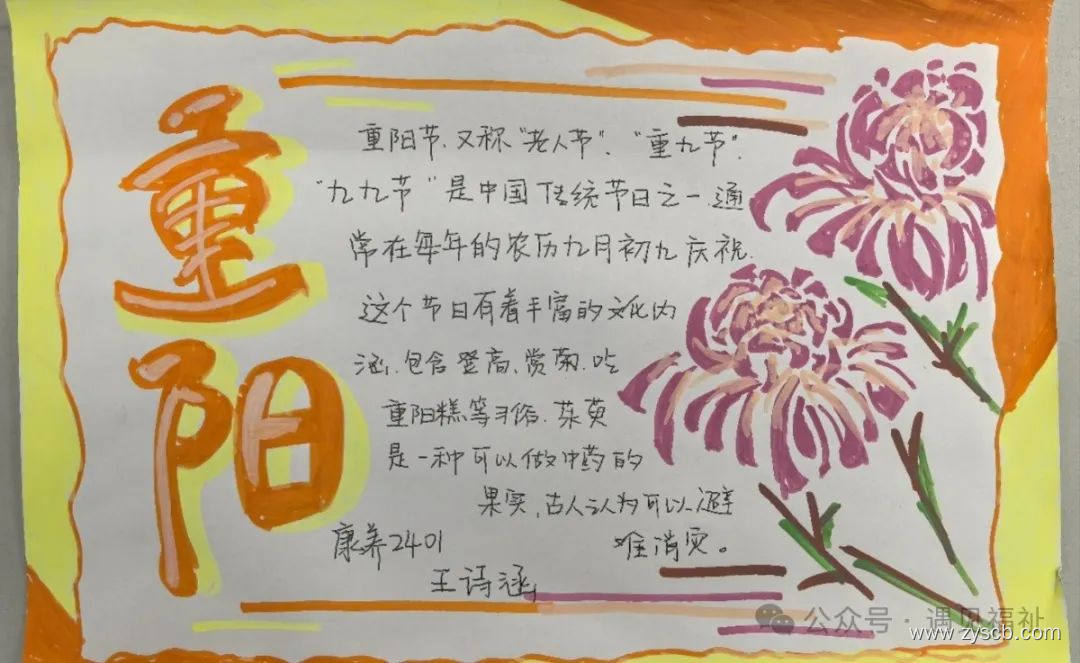 重阳
重阳节、又称“老人节”、“重九节”、
“九九节”是中国传统节日之一、通
常在每年的农历九月初九庆祝.
这个节日有着丰富的文化内
涵、包含登高、赏菊、吃
重阳糕等习俗、茱萸
是一种可以做中药的
果实、古人认为可以避
难消灾。
康养2401
王诗涵
公众号·遇见福祉
www.zyscb.com